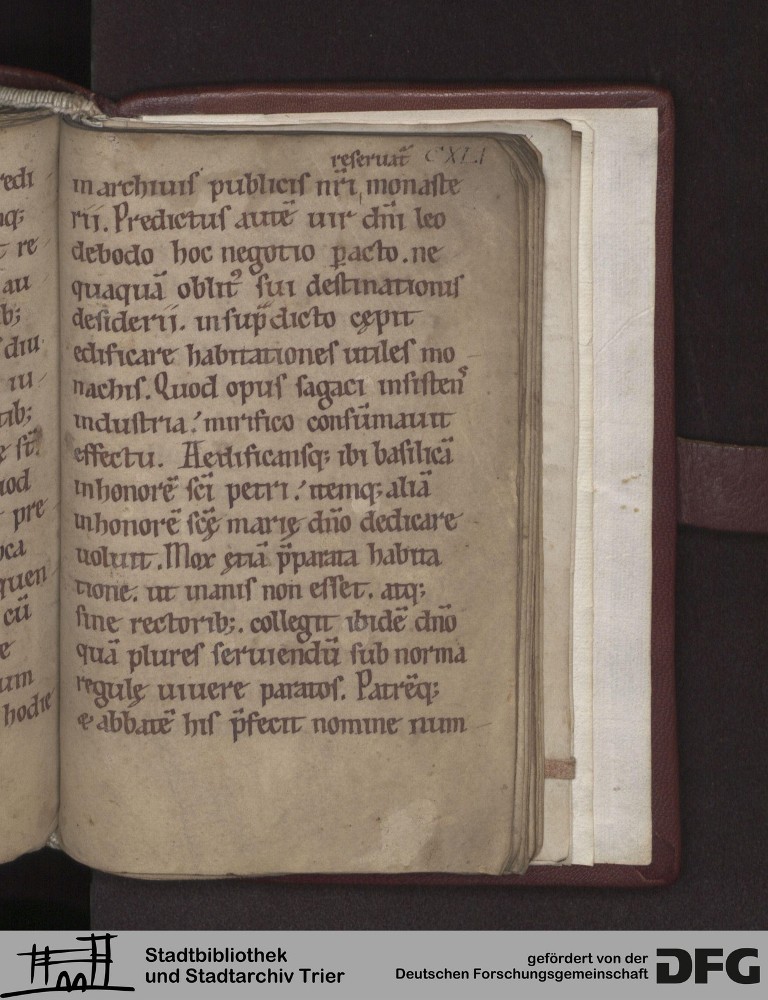 redi
nq;
t re
au
b;
diu
iu
tib;
e st̄.
uod
pre
oca
quen
cū
e
um
hodie
reseruat̄ CXLI
in archiuis publicis nr̄i monaste
rii. Predictus autē uir dn̄i leo
debodo hoc negotio ꝑacto. ne
quaquā oblitꝰ sui destinationis
desiderii. insup̄dicto cępit
edificare habitationes utiles mo
nachis. Quod opus sagaci insistens
industria. mirifico consūmauit
effectu. Aedificansq; ibi basilicā
in honorē sc̄i petri. itemq; aliā
in honorē sc̄ę marię dn̄o dedicare
uoluit. Mox etiā p̄parata habita
tione. ut inanis non esset. atq;
sine rectorib;. collegit ibidē dn̄o
quā plures seruiendū sub norma
regulę uiuere paratos. Patrēq;
& abbatē his p̄fecit nomine num
Stadtbibliothek
und Stadtarchiv Trier
gefördert von der
Deutschen Forschungsgemeinschaft
DFG